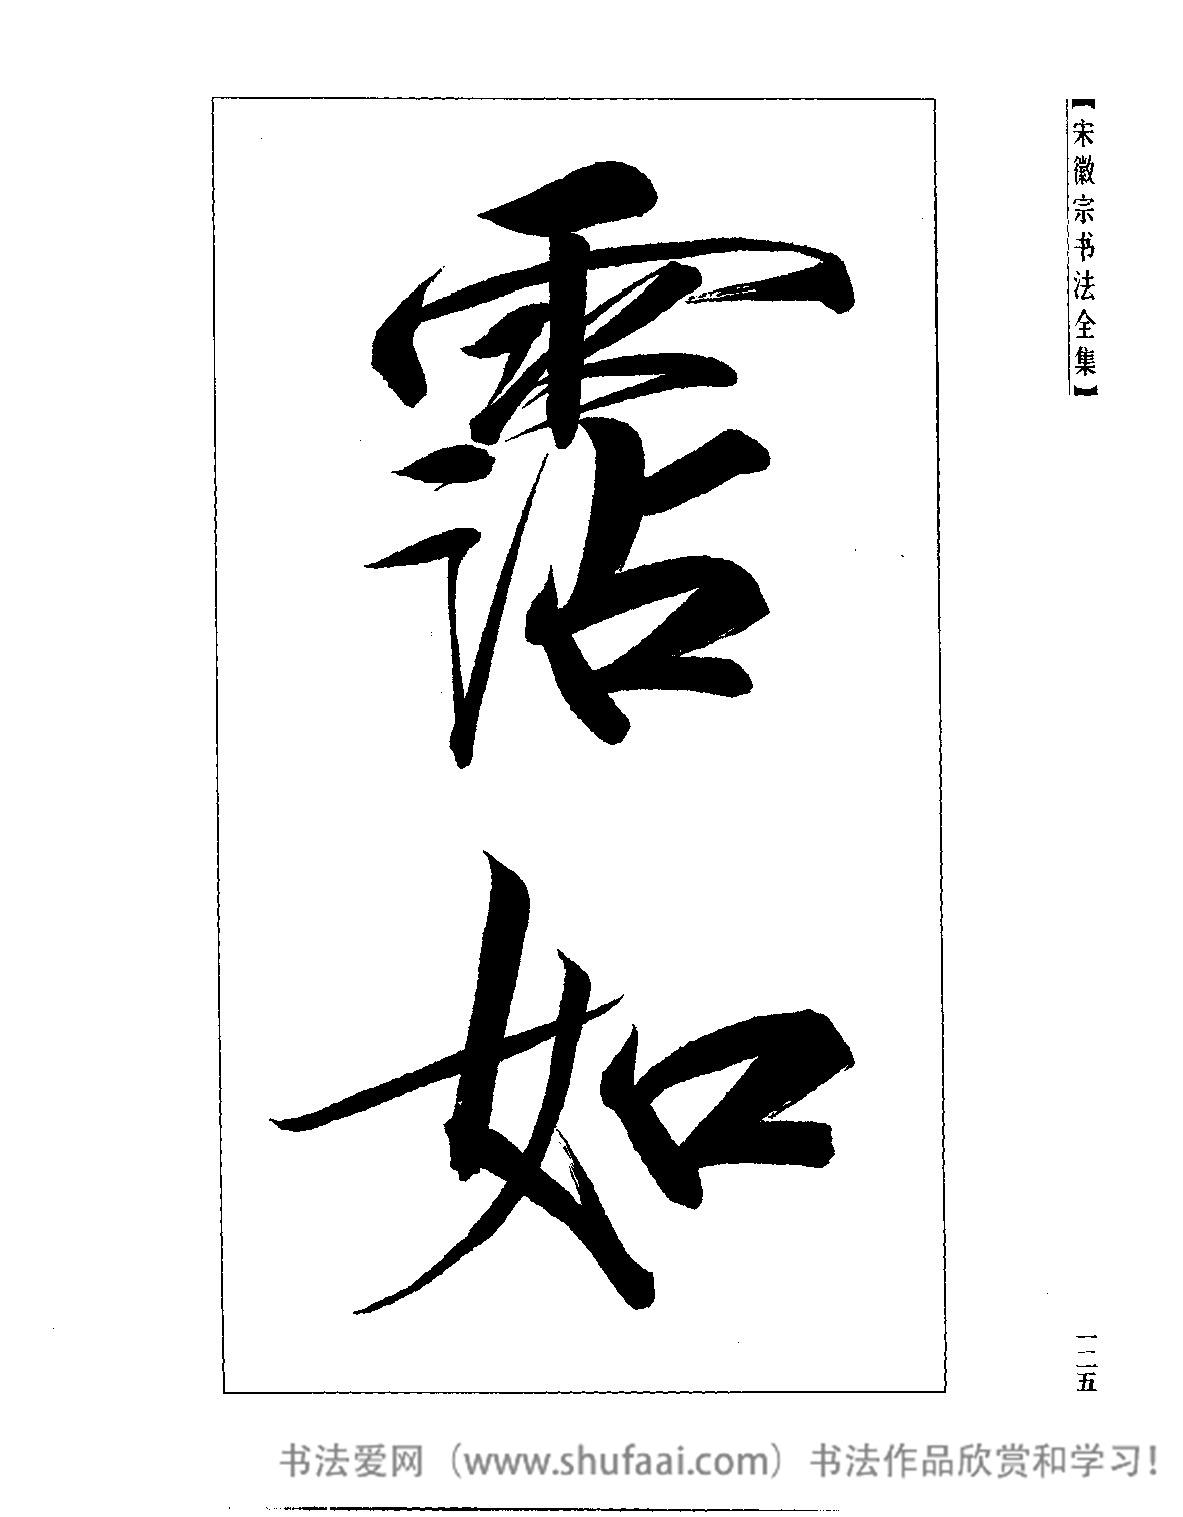 【宋徽宗书法全集】
霑
如
一二五
书法爱网（www.shufaai.com）书法作品欣赏和学习！